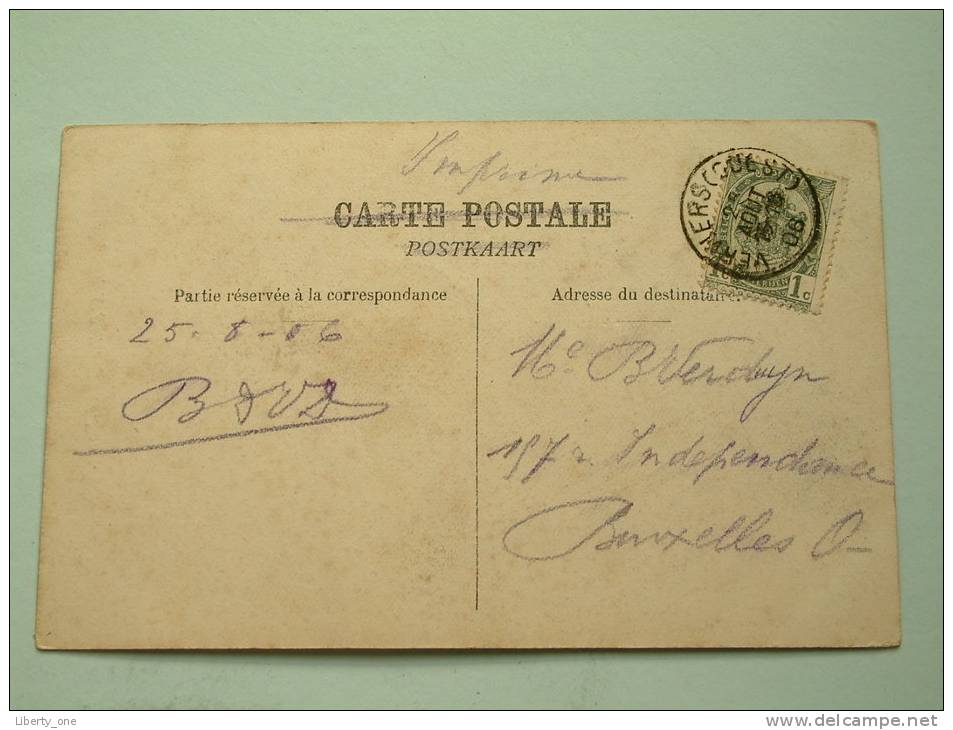 Imprimé
CARTE POSTALE
POSTKAART
VERVIERS (OUEST)
25
AOUT
06
1c
Partie réservée à la correspondance
Adresse du destinataire
25-8-06
BDVD
Me BVerduyn
157 r. Independance
Bruxelles O
Liberty_one
www.delcampe.net